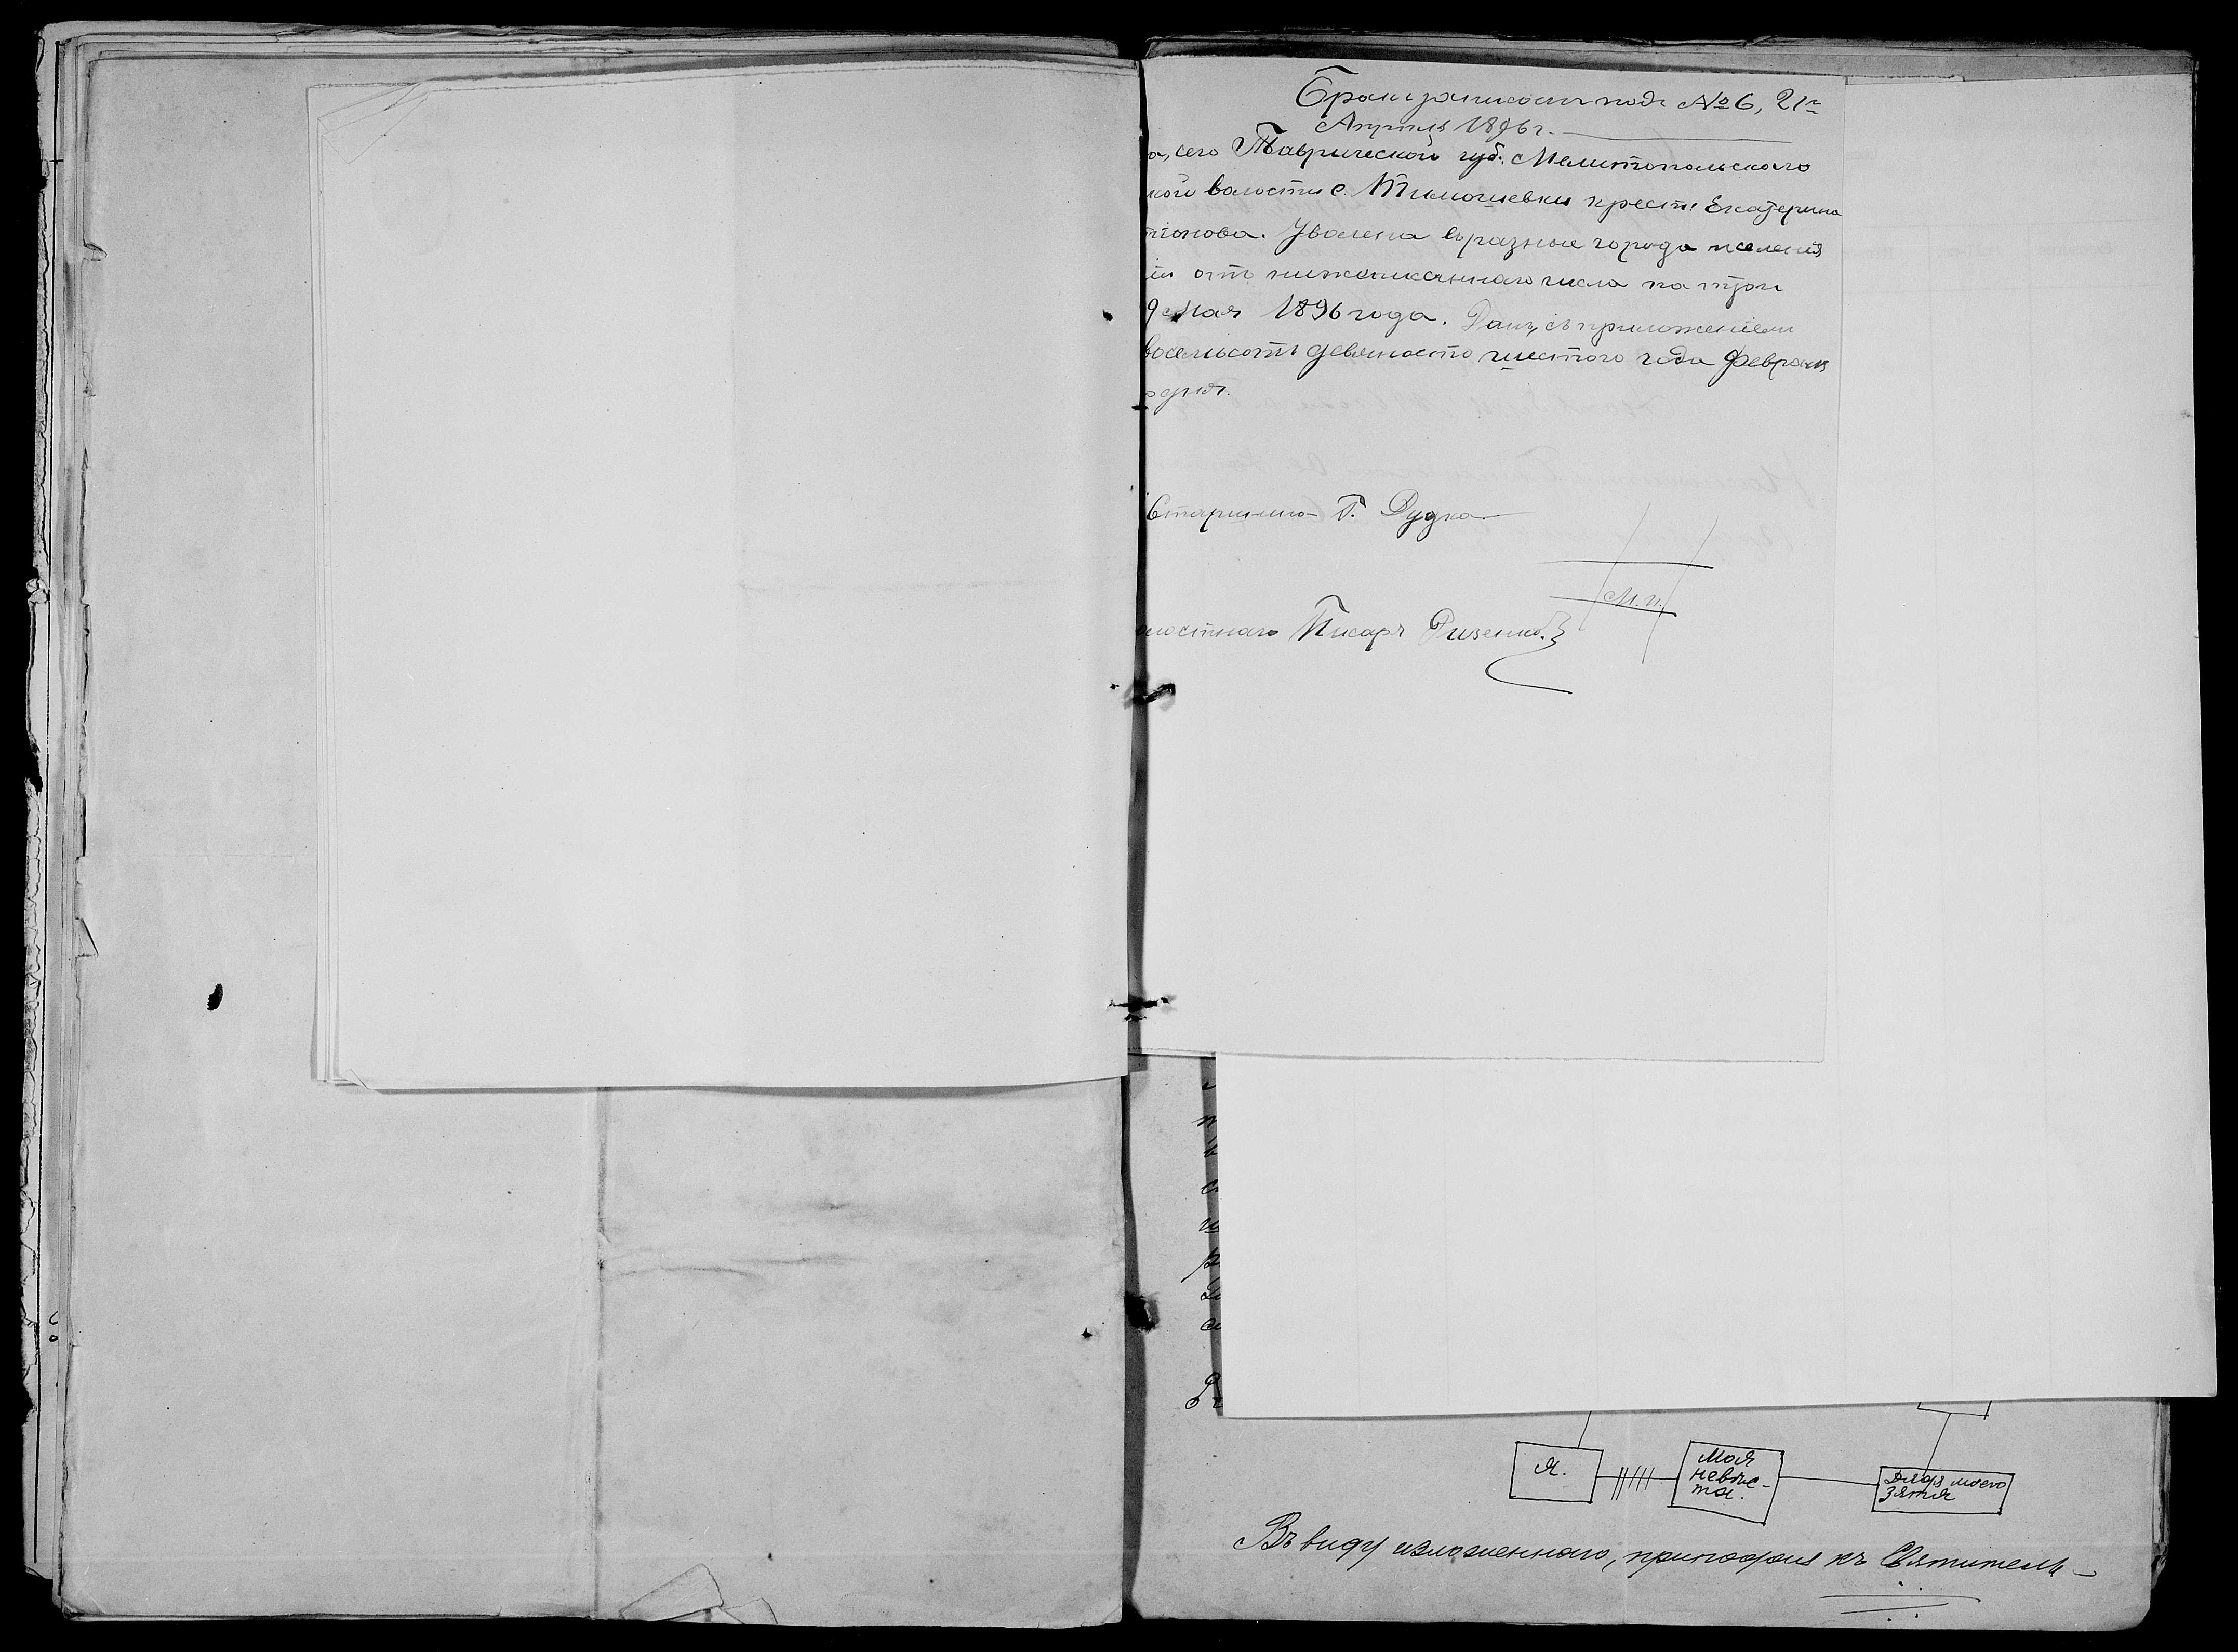 Бракъ записанъ подъ № 6, 21го
Апреля 1896 г.
а, сего Таврической губ. Мелитопольскаго
кой волости с. Тимошевки крест. Екатерина
тонова. Уволена въ разные города и селенія
ія отъ нижеписаннаго числа на три
9 Мая 1896 года. Данъ, съ приложеніемъ
восемьсотъ девяносто шестого года Февраля
дня.
Старшина Г. Дудка.
М. П.
олостнаго Писаря
Я.
Моя
невѣс-
та.
Дядя моего
Зятя
Въ виду изложеннаго, припадая къ Святитель-